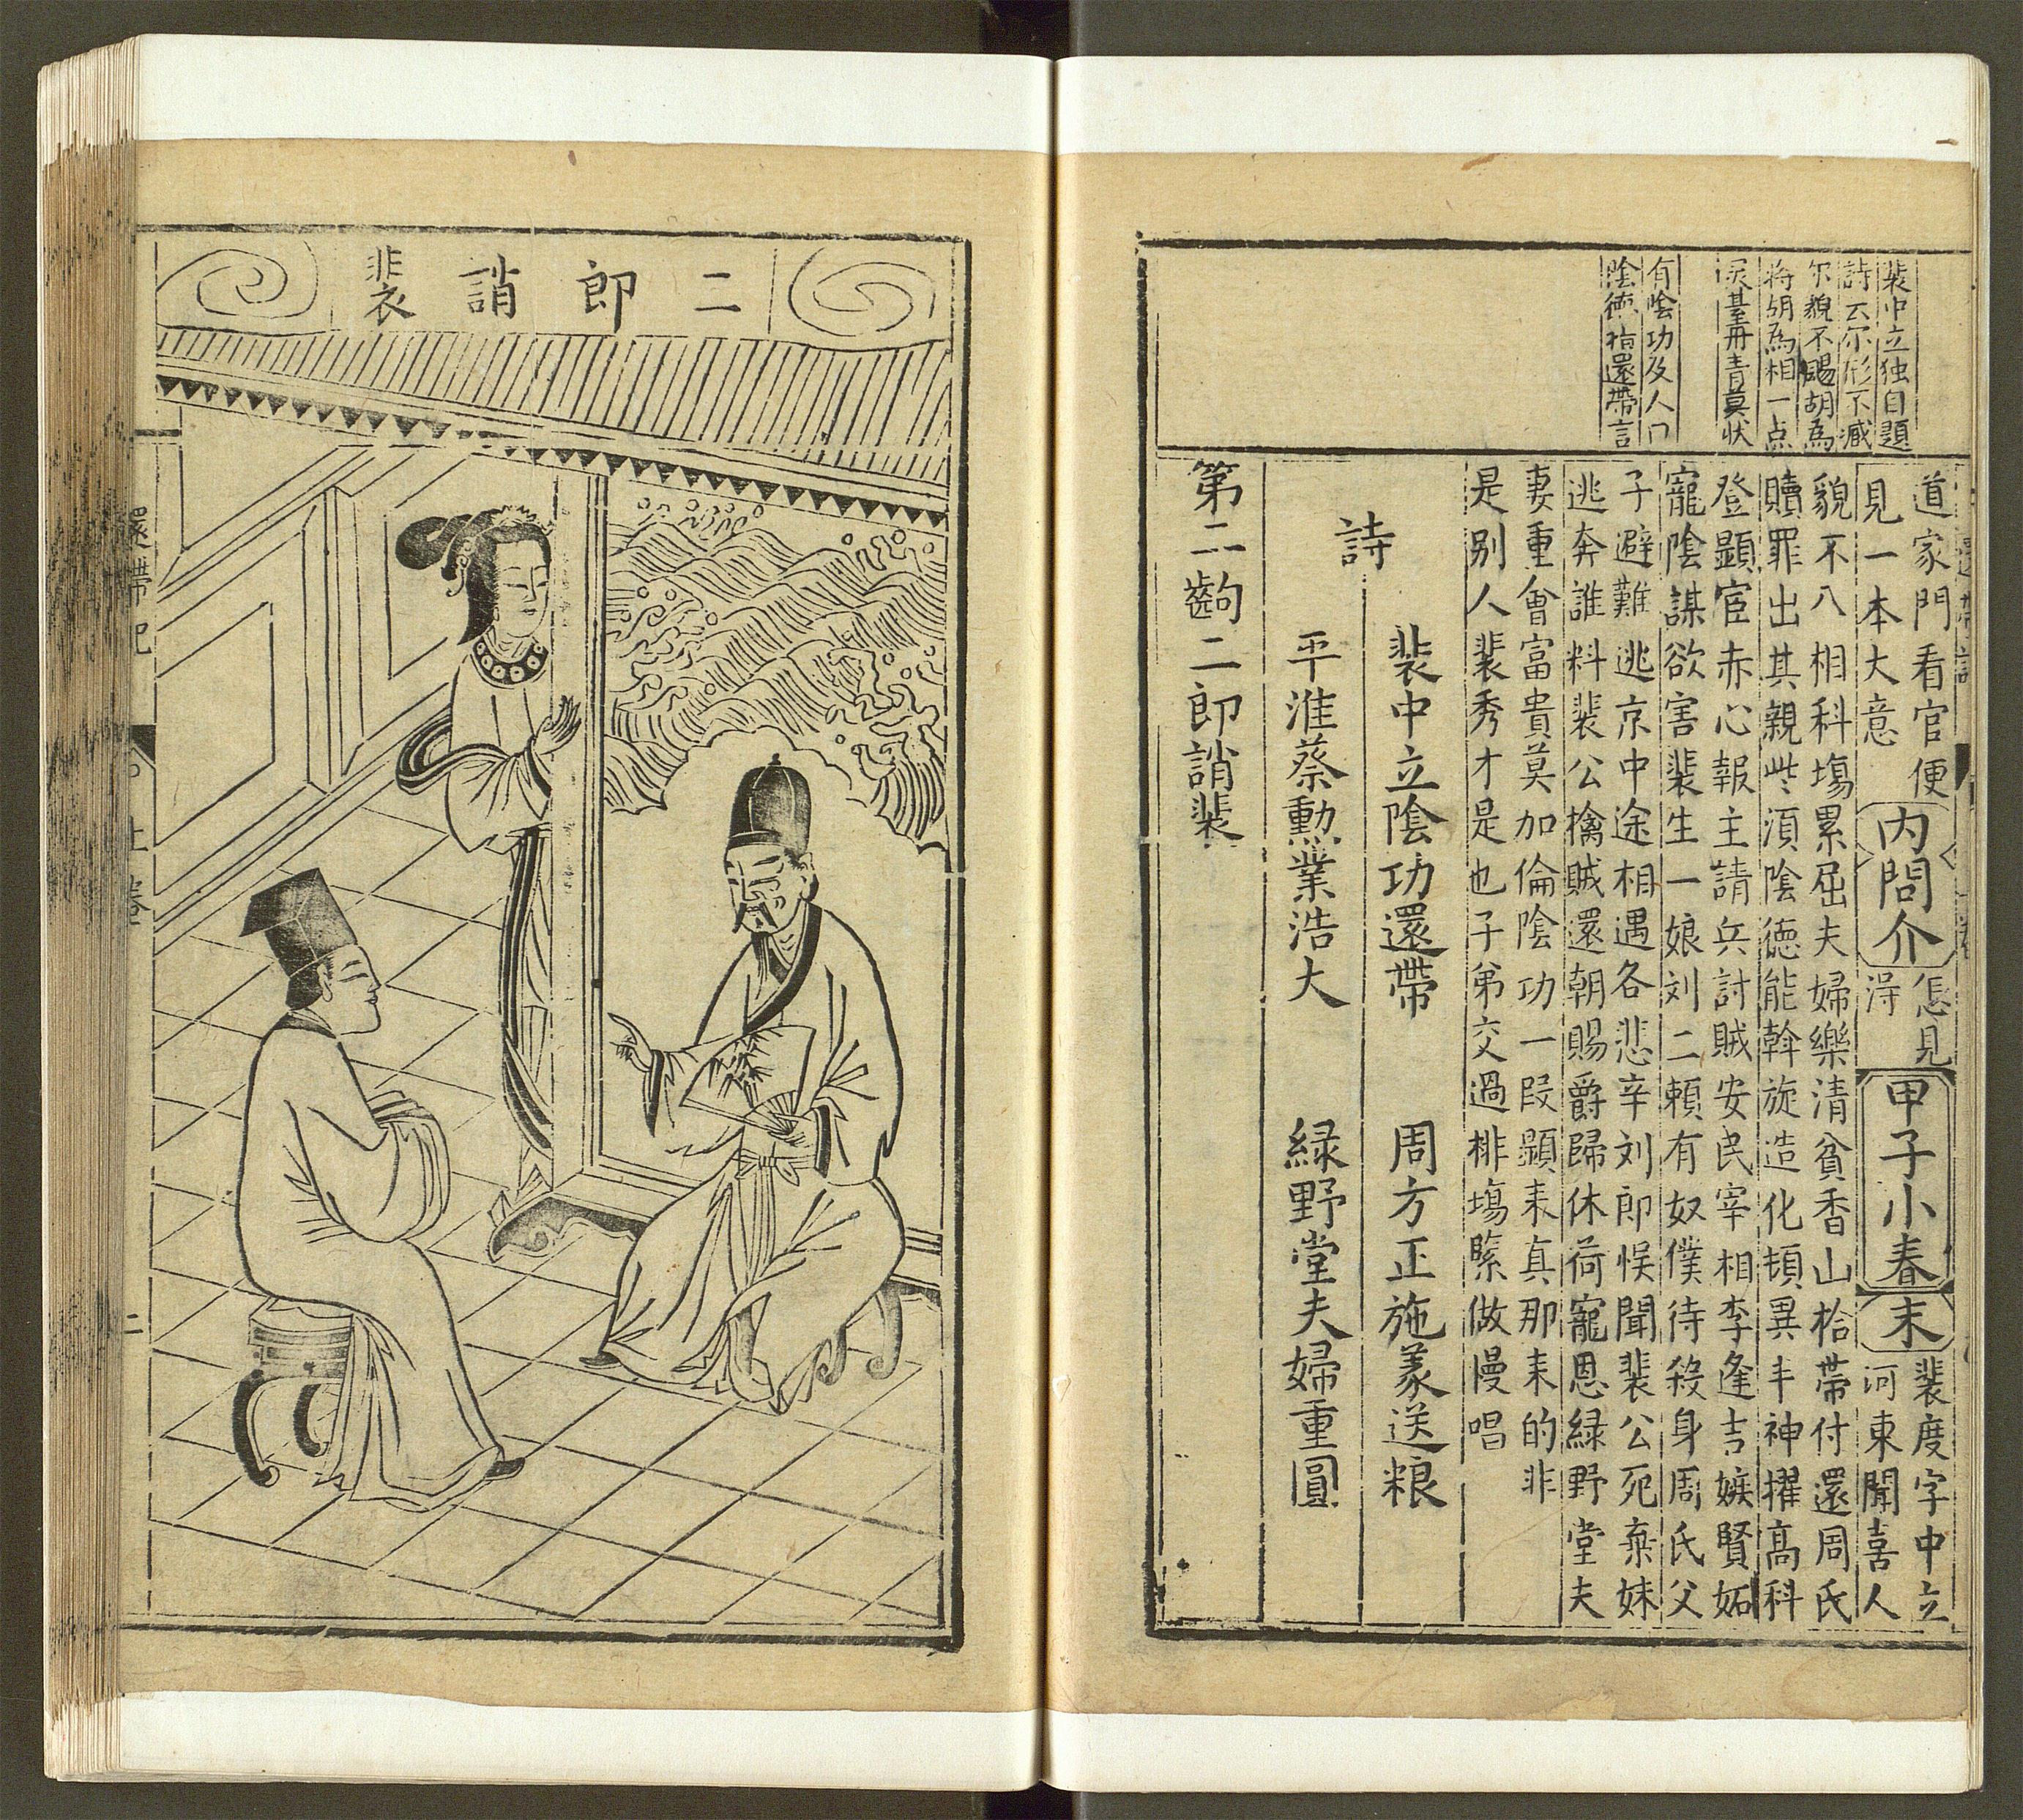 裴中立独自題
詩云尔形不臧
尔貌不颺胡爲
将胡爲相一点
灵䑓丹青莫状
有陰功及人口
陰德指還帶言
道家門看官便
見一本大意
内問介
怎見
淂
甲子小春
末
裴度字中立
河東聞喜人
貌不八相科塲累屈夫婦樂清貧香山拾帶付還周氏
贖罪出其親些湏陰德能斡旋造化頓異丰神擢髙科
登顯宦赤心報主請兵討賊安民宰相李逢吉嫉賢妬
寵陰謀欲害裴生一娘刘二賴有奴僕待殺身周氏父
子避難逃京中途相遇各悲辛刘郎悮聞裴公死棄妹
逃奔誰料裴公擒賊還朝賜爵歸休荷寵恩緑野堂夫
妻重會富貴莫加倫陰功一叚顯耒真那耒的非
是别人裴秀才是也子弟交過排塲緊做慢唱
詩
裴中立陰功還帶 周方正施義送粮
平淮蔡勲業浩大 緑野堂夫婦重圓
第二齣二郎誚裴
二郎誚裴
還帶記
上卷
二